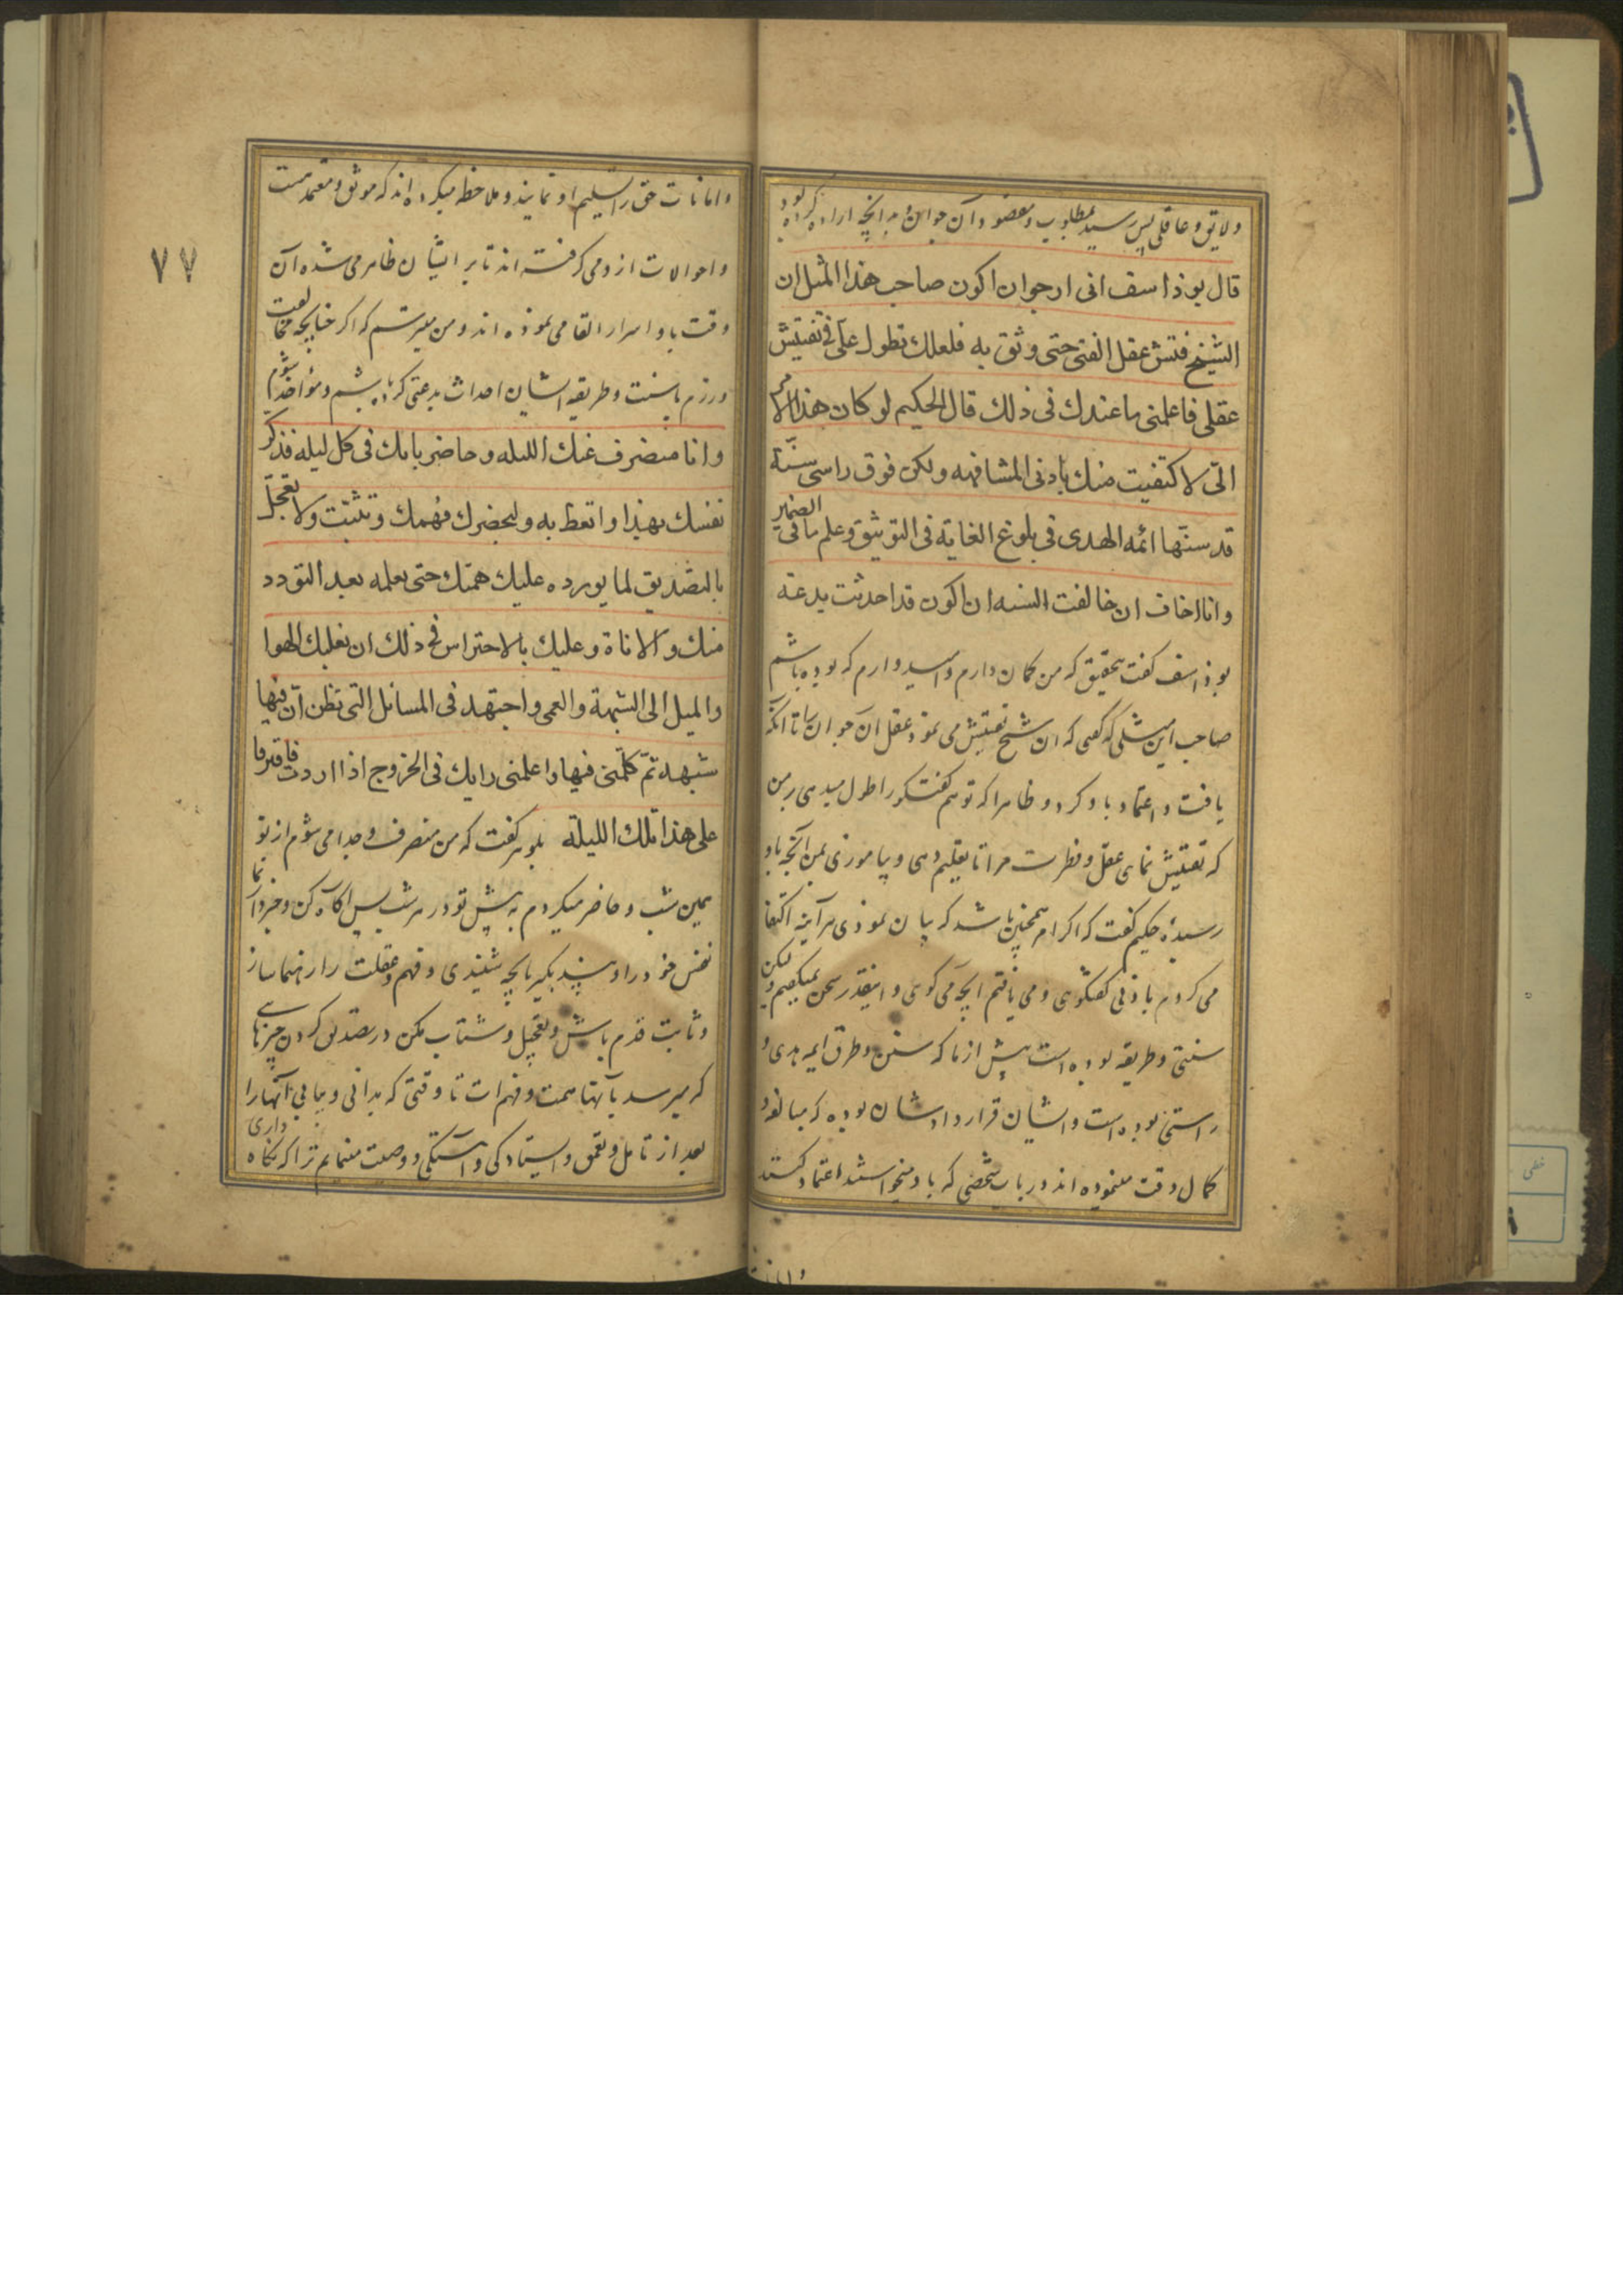 ولایق و عاقلی پس رسید بمطلوب و مقصود آن جوان بدانچه اراده کرده بود
قال یوذاسف انی ارجو ان اکون صاحب هذا المثل ان
الشیخ فتش عقل الفتی حتی وثق به فلعلك تطول علی فی تفتیش
عقلی فاعلمنی ما عندك فی ذلك قال الحکیم لو کان هذا الامر
الیّ لاکتفیت منك بادنی المشافهه ولکن فوق راسی سنّة
قد سنتها ائمه الهدی فی بلوغ الغایة فی التوثیق وعلم ما فی الضمیر
وانا اخاف ان خالفت السنه ان اکون قد احدثت بدعة
یوذاسف کفت بتحقیق که من کمان دارم وامیدوارم که بوده باشم
صاحب این مثلی که کفتی که ان شیخ تفتیش می نمود عقل ان جوان را تا انکه
یافت و اعتماد باو کرد و ظاهرا که تو هم کفتکو را طول میدهی بر من
که تفتیش نمای عقل و فطرت مرا تا تعلیم دهی و بیاموزی بمن آنچه باو
رسیدۀ حکیم کفت که اکر امر همچنین باشد که بیان نمودی هرآینه اکتفا
می کردم بادنی کفتکوی و می یافتم انچه می کوی و اینقدر سخن نمیکفتم ولیکن
سنتی و طریقه بوده است پیش از ما که سنن و طرق ایمه هدی و
راستی بوده است و ایشان قرارداد ایشان بوده که مبالغه و
کمال دقت مینموده اند در باب شخصی که باو میخواستند اعتماد کنند
وامانات
وامانات حق را تسلیم او نمایند و ملاحظه میکرده اند که موثق و معتمد هست
و احوالات ازو می کرفته اند تا بر ایشان ظاهر می شده آن
وقت باو اسرار القا می نموده اند و من میترسم که اکر چنانچه مخالفت
ورزم با سنت و طریقه ایشان احداث بدعتی کرده باشم و مؤاخذ شوم
وانا منصرف عنك اللیله وحاضر بابك فی کل لیله فذکر
نفسك بهذا واتعظ به ولیحضرك فهمك وتثبّت ولا تعجل
بالتصدیق لما یورده علیك همتك حتی تعلمه بعد التودد
منك والاناة وعلیك بالاحتراس فی ذلك ان یغلبك الهوا
والمیل الی الشبهة والعمی واجتهد فی المسائل التی تظن ان فیها
شبهه ثمّ کلمنی فیها واعلمنی رایك فی الخروج اذا اردت فافترقا
علی هذا تلك اللیلة بلوهر کفت که من منصرف و جدا می شوم از تو
همین شب و حاضر میکردم به پیش تو در هر شب پس آکاه کن و خبردار نما
نفس خود را و پند بکیر بانچه شنیدی و فهم و عقلت را رهنما ساز
و ثابت قدم باش و تعجیل و شتاب مکن در تصدیق کردن چیزهایی
که میرسد بآنها همت و فهم ات تا وقتی که بدانی و بیابی آنها را
بعد از تامل و تعمق و ایستادکی و آهستکی و وصیت مینمایم ترا که نکاه داری
۷۷
خطی